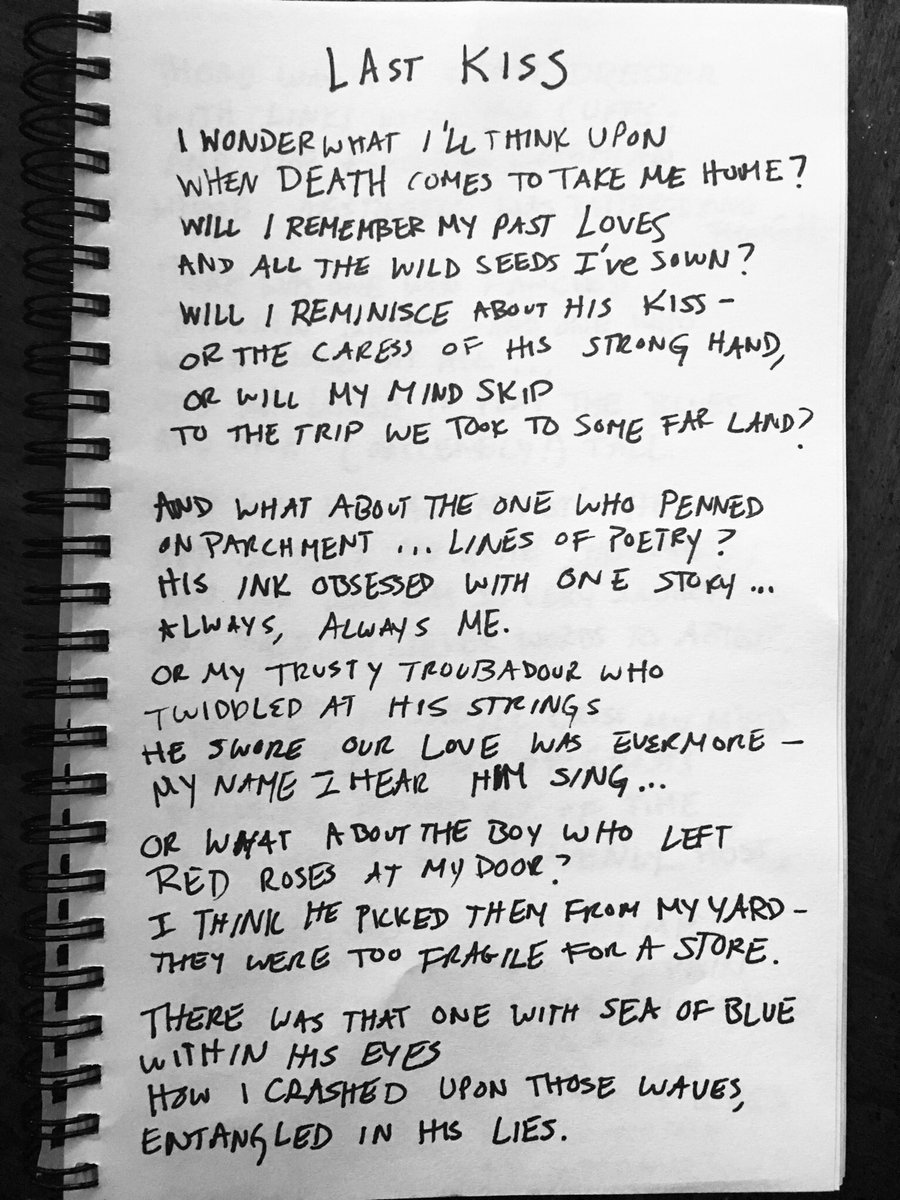 LAST KISS
I WONDER WHAT I'LL THINK UPON
WHEN DEATH COMES TO TAKE ME HOME?
WILL I REMEMBER MY PAST LOVES
AND ALL THE WILD SEEDS I'VE SOWN?
WILL I REMINISCE ABOUT HIS KISS –
OR THE CARESS OF HIS STRONG HAND,
OR WILL MY MIND SKIP
TO THE TRIP WE TOOK TO SOME FAR LAND?
AND WHAT ABOUT THE ONE WHO PENNED
ON PARCHMENT ... LINES OF POETRY?
HIS INK OBSESSED WITH ONE STORY...
ALWAYS, ALWAYS ME.
OR MY TRUSTY TROUBADOUR WHO
TWIDDLED AT HIS STRINGS
HE SWORE OUR LOVE WAS EVERMORE –
MY NAME I HEAR HIM SING...
OR WHAT ABOUT THE BOY WHO LEFT
RED ROSES AT MY DOOR?
I THINK HE PICKED THEM FROM MY YARD –
THEY WERE TOO FRAGILE FOR A STORE.
THERE WAS THAT ONE WITH SEA OF BLUE
WITHIN HIS EYES
HOW I CRASHED UPON THOSE WAVES,
ENTANGLED IN HIS LIES.